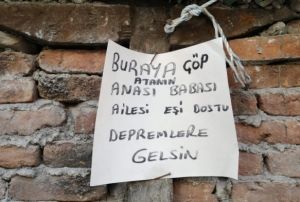 BURAYA ÇÖP
ATANIN
ANASI BABASI
AİLESİ EŞİ DOSTU
DEPREMLERE
GELSİN